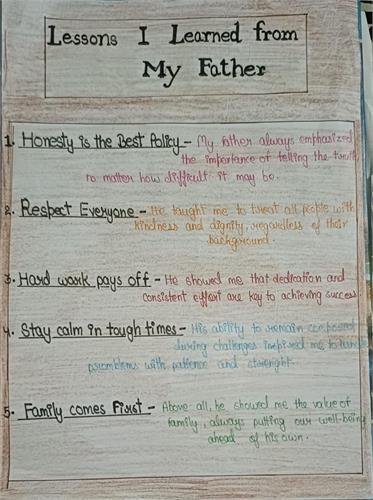 Lessons I Learned from
My Father
1. Honesty is the Best Policy - My father always emphasized
the importance of telling the truth
no matter how difficult it may be.
2. Respect Everyone - He taught me to treat all people with
kindness and dignity, regardless of their
background.
3. Hard work pays off - He showed me that dedication and
consistent effort are key to achieving success
4. Stay calm in tough times - His ability to remain composed
during challenges inspired me to
with patience and
5. Family comes First - Above all, he showed me the value of
family, always putting our well-being
ahead of his own.